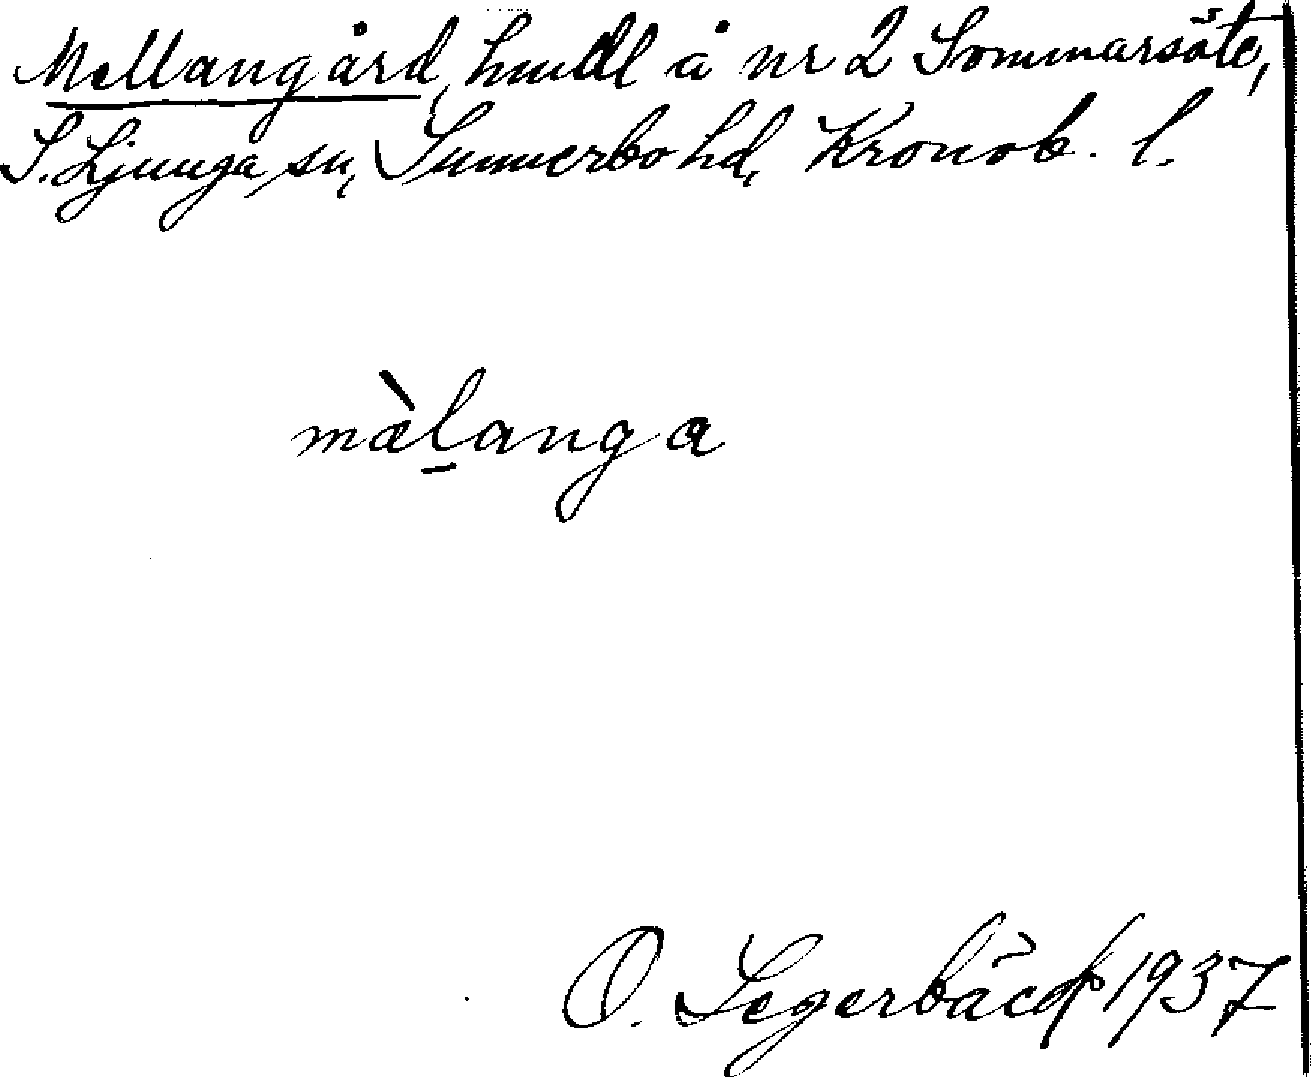 Mellangård, hmdl å nr 2 Sommarsäte,
S. Ljunga sn, Sunnerbo hd, Kronob. l.
mæ̀l̠anga
O. Segerbäck 1937